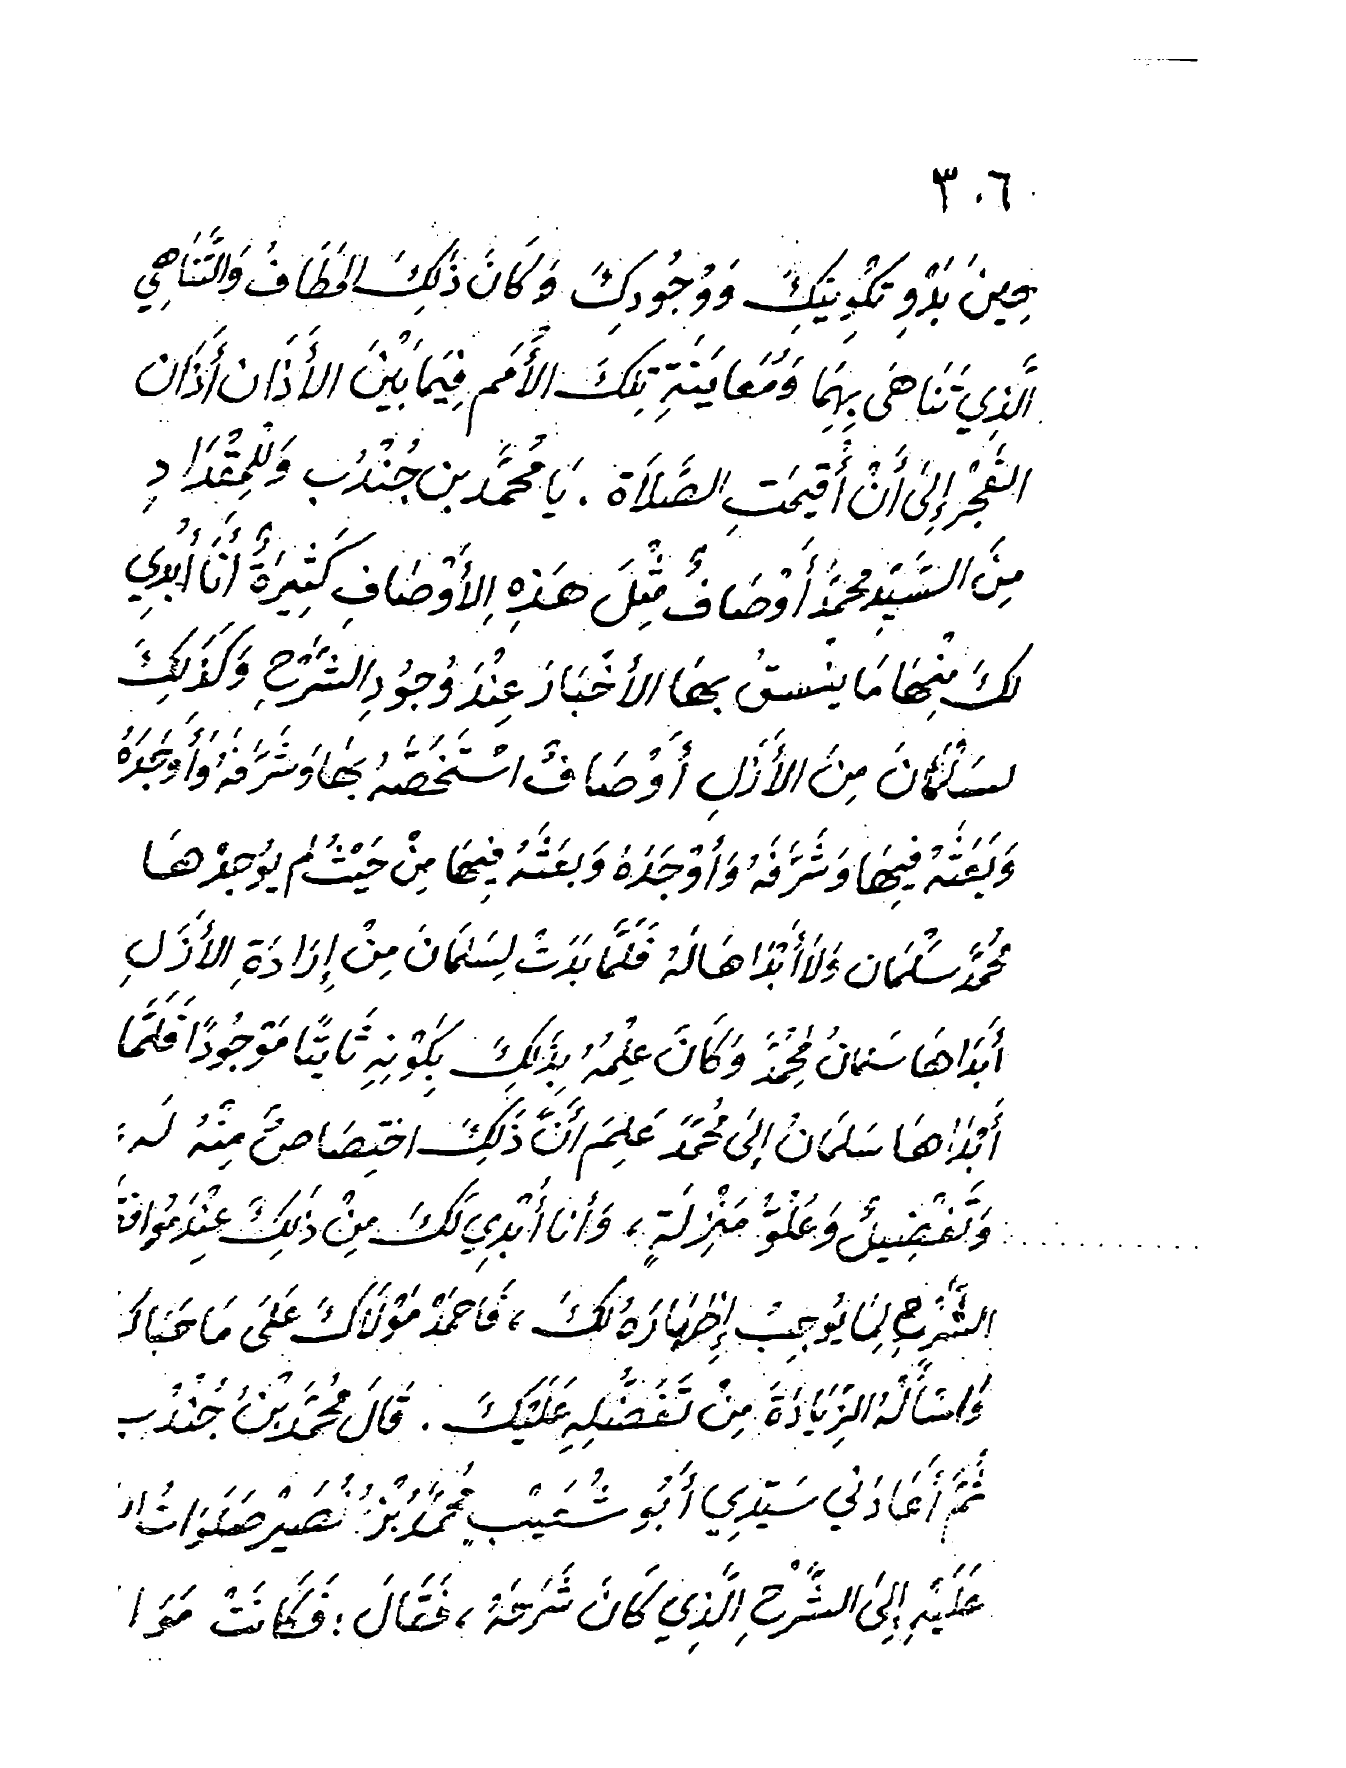 ٣٠٦
حِينَ بَدْوِ تَكْوِينِكَ وَوُجُودِكَ وَكَانَ ذَلِكَ الخَطَافُ وَالتَّنَاهِي
الَّذِي تَنَاهَى بِهِمَا وَمُعَايَنَةِ تِلْكَ الأُمَمِ فِيمَا بَيْنَ الأَذَانِ أَذَانِ
الفَجْرِ إِلَى أَنْ أُقِيمَتِ الصَّلَاَة . يَا مُحَمَّد بن جُنْدُب وَلِلْمِقْدَادِ
مِنَ السَّيِّدِ مُحَمَّدٍ أَوْصَافٌ مِثْلَ هَذِهِ الأَوْصَافِ كَثِيرَةٌ أَنَا أُبْدِي
لَكَ مِنْهَا مَا ينْسقُ بهَا الأخْبَارَ عِنْدَ وُجُودِ الشَّرْحِ وَكَذَلِكَ
لسَلْمَانَ مِنَ الأَزَلِ أَوْصَافٌ اسْتَخَصَّهُ بهَا وَشَرَّفَهُ وَأَوْجَدَهُ
وَبَعَثَهُ فِيهَا وَشَرَّفَهُ وَأَوْجَدَهُ وَبعَثَهُ فِيهَا مِنْ حَيْثُ لم يُوجِدْهَا
مُحَمَّدٌ سَلْمَان وَلاَ أَبْدَاهَا لَهُ فَلَمَّا بَدَتْ لِسَلمَانَ مِنْ إِرَادَةِ الأَزَلِ
أَبْدَاهَا سَلمانُ لمُحَمَّدٍ وَكَانَ عِلْمُهُ بِذَلِكَ بِكَوْنِهِ ثَابتًا مَوْجُودًا فَلَمَّا
أَبْدَاهَا سَلمَانُ إِلَى مُحَمَّدٍ عَلِمَ أَنَّ ذَلِكَ اختِصَاصٌ مِنْهُ لَه
وَتَفْضِيلٌ وَعُلُوُّ مَنْزِلَةٍ ، وَأنا أُبْدِي لَكَ مِنْ ذَلِكَ عِنْدَ مُوافقَ
الشَّرْحِ لِمَا يُوجِبُ إِظْهَارَهُ لَكَ ، فَاحمَدْ مَوْلَاكَ عَلَى مَا حَبَاكَ
وَاسْأَلْهُ الزِّيَادَةَ مِنْ تَفَضُّلِهِ عَلَيْكَ . قَالَ مُحَمَّدُ بْنُ جُنْدُبٍ
ثُمَّ أَعَادَنِي سَيِّدِي أَبُو شُعَيْبٍ مُحَمَّدُ بْنُ نُصَيْرٍ صَلَوَاتُ ال
عَلَيْهِ إِلَى الشَّرْحِ الَّذِي كَانَ شَرَحَهُ ، فَقَالَ : فَكَانَتْ مَوَا